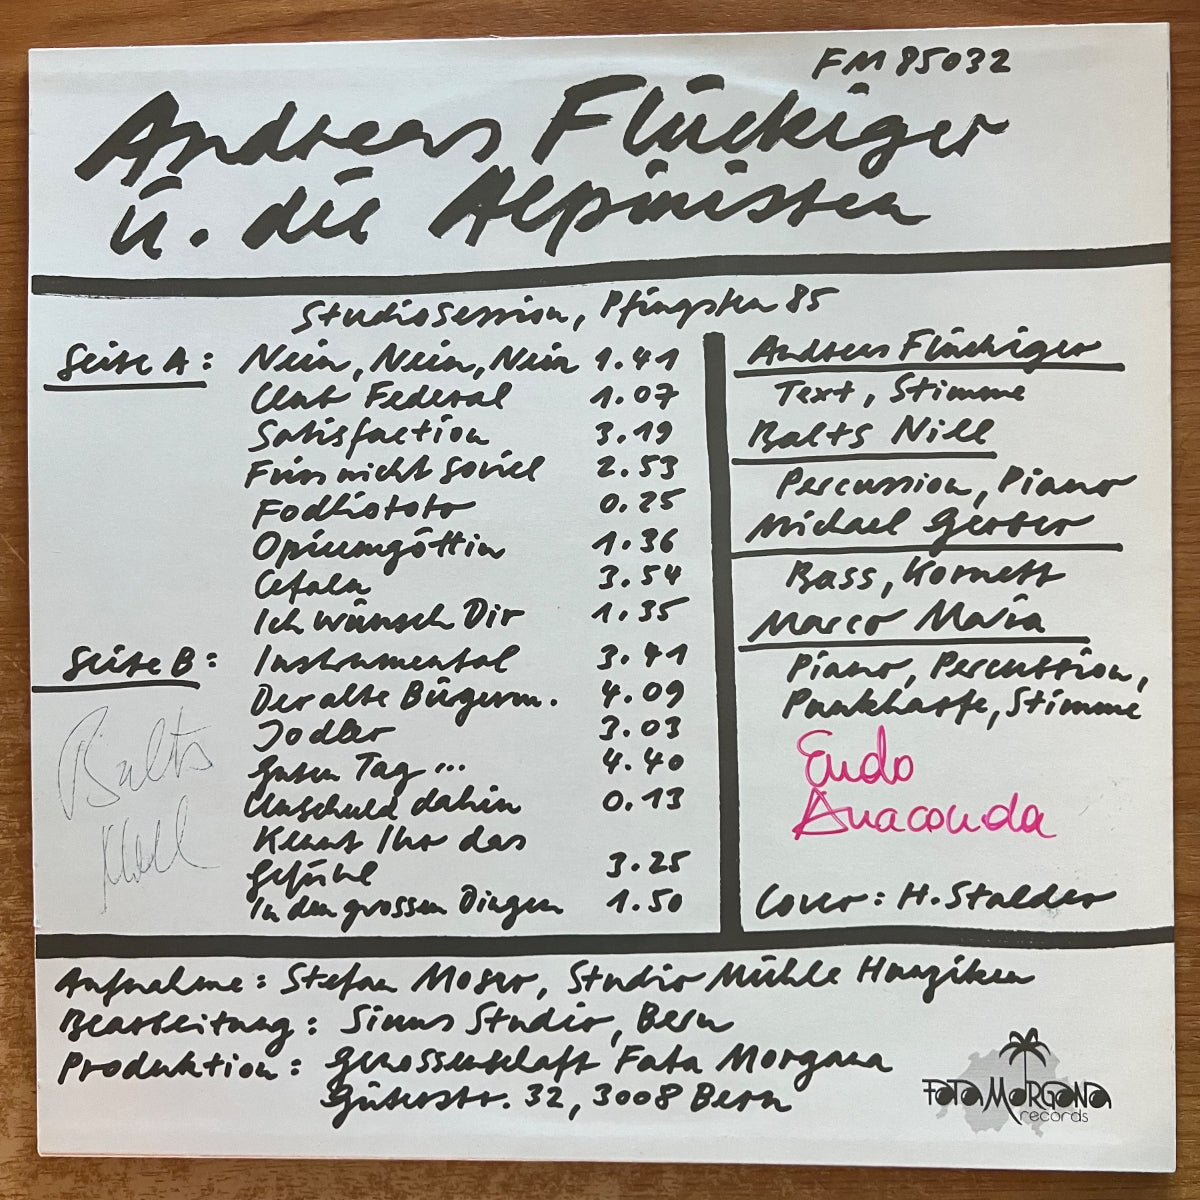 FM 85032
Andreas Flückiger
u. die Alpinisten
Studiosession, Pfingsten 85
Seite A: Nein, Nein, Nein 1.41
Club Federal 1.07
Satisfaction 3.19
Fürs nicht soviel 2.53
Fodliototo 0.25
Opiumgöttin 1.36
Cefalu 3.54
Ich wünsch Dir 1.35
Seite B: Instrumental 3.41
Der alte Bügerm. 4.09
Jodler 3.03
Guten Tag ... 4.40
Unschuld dahin 0.13
Kennt Ihr das
Gefühl 3.25
In den grossen Dingen 1.50
Andreas Flückiger
Text, Stimme
Balts Nill
Percussion, Piano
Michael Gerber
Bass, Kornett
Marco Maria
Piano, Percussion,
Punkharfe, Stimme
Endo
Anaconda
Balts
Nill
Cover: H. Stalder
Aufnahme: Stefan Moser, Studio Mühle Hunziken
Bearbeitung: Sinus Studio, Bern
Produktion: Genossenschaft Fata Morgana
Güterstr. 32, 3008 Bern
FATA MORGANA
records